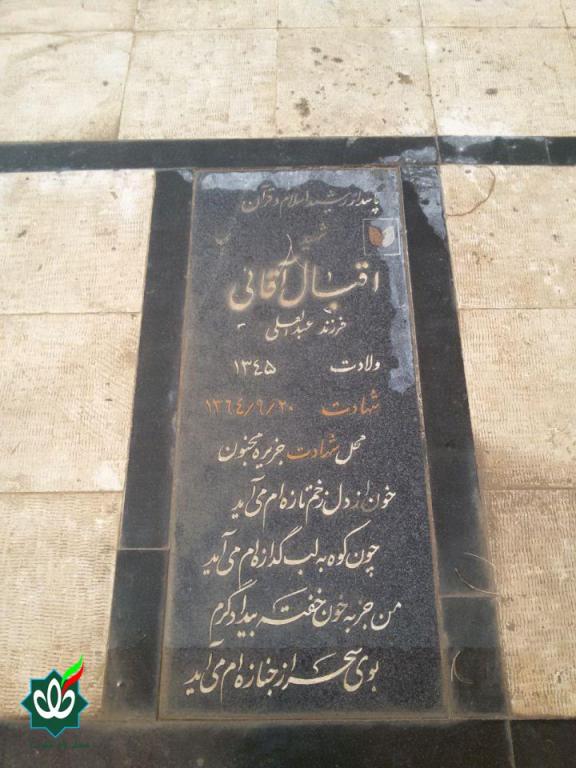 پاسدار رشید اسلام و قرآن
شهید
اقبال آقائی
فرزند عبدالعلی
ولادت ۱۳۴۵
شهادت ۱۳۶۴/۹/۲۰
محل شهادت جزیره مجنون
خون از دل زخم تازه ام می آید
چون کوه به لب گدازه ام می آید
من جز به خون خفته بیدادگرم
بوی سحر از جنازه ام می آید